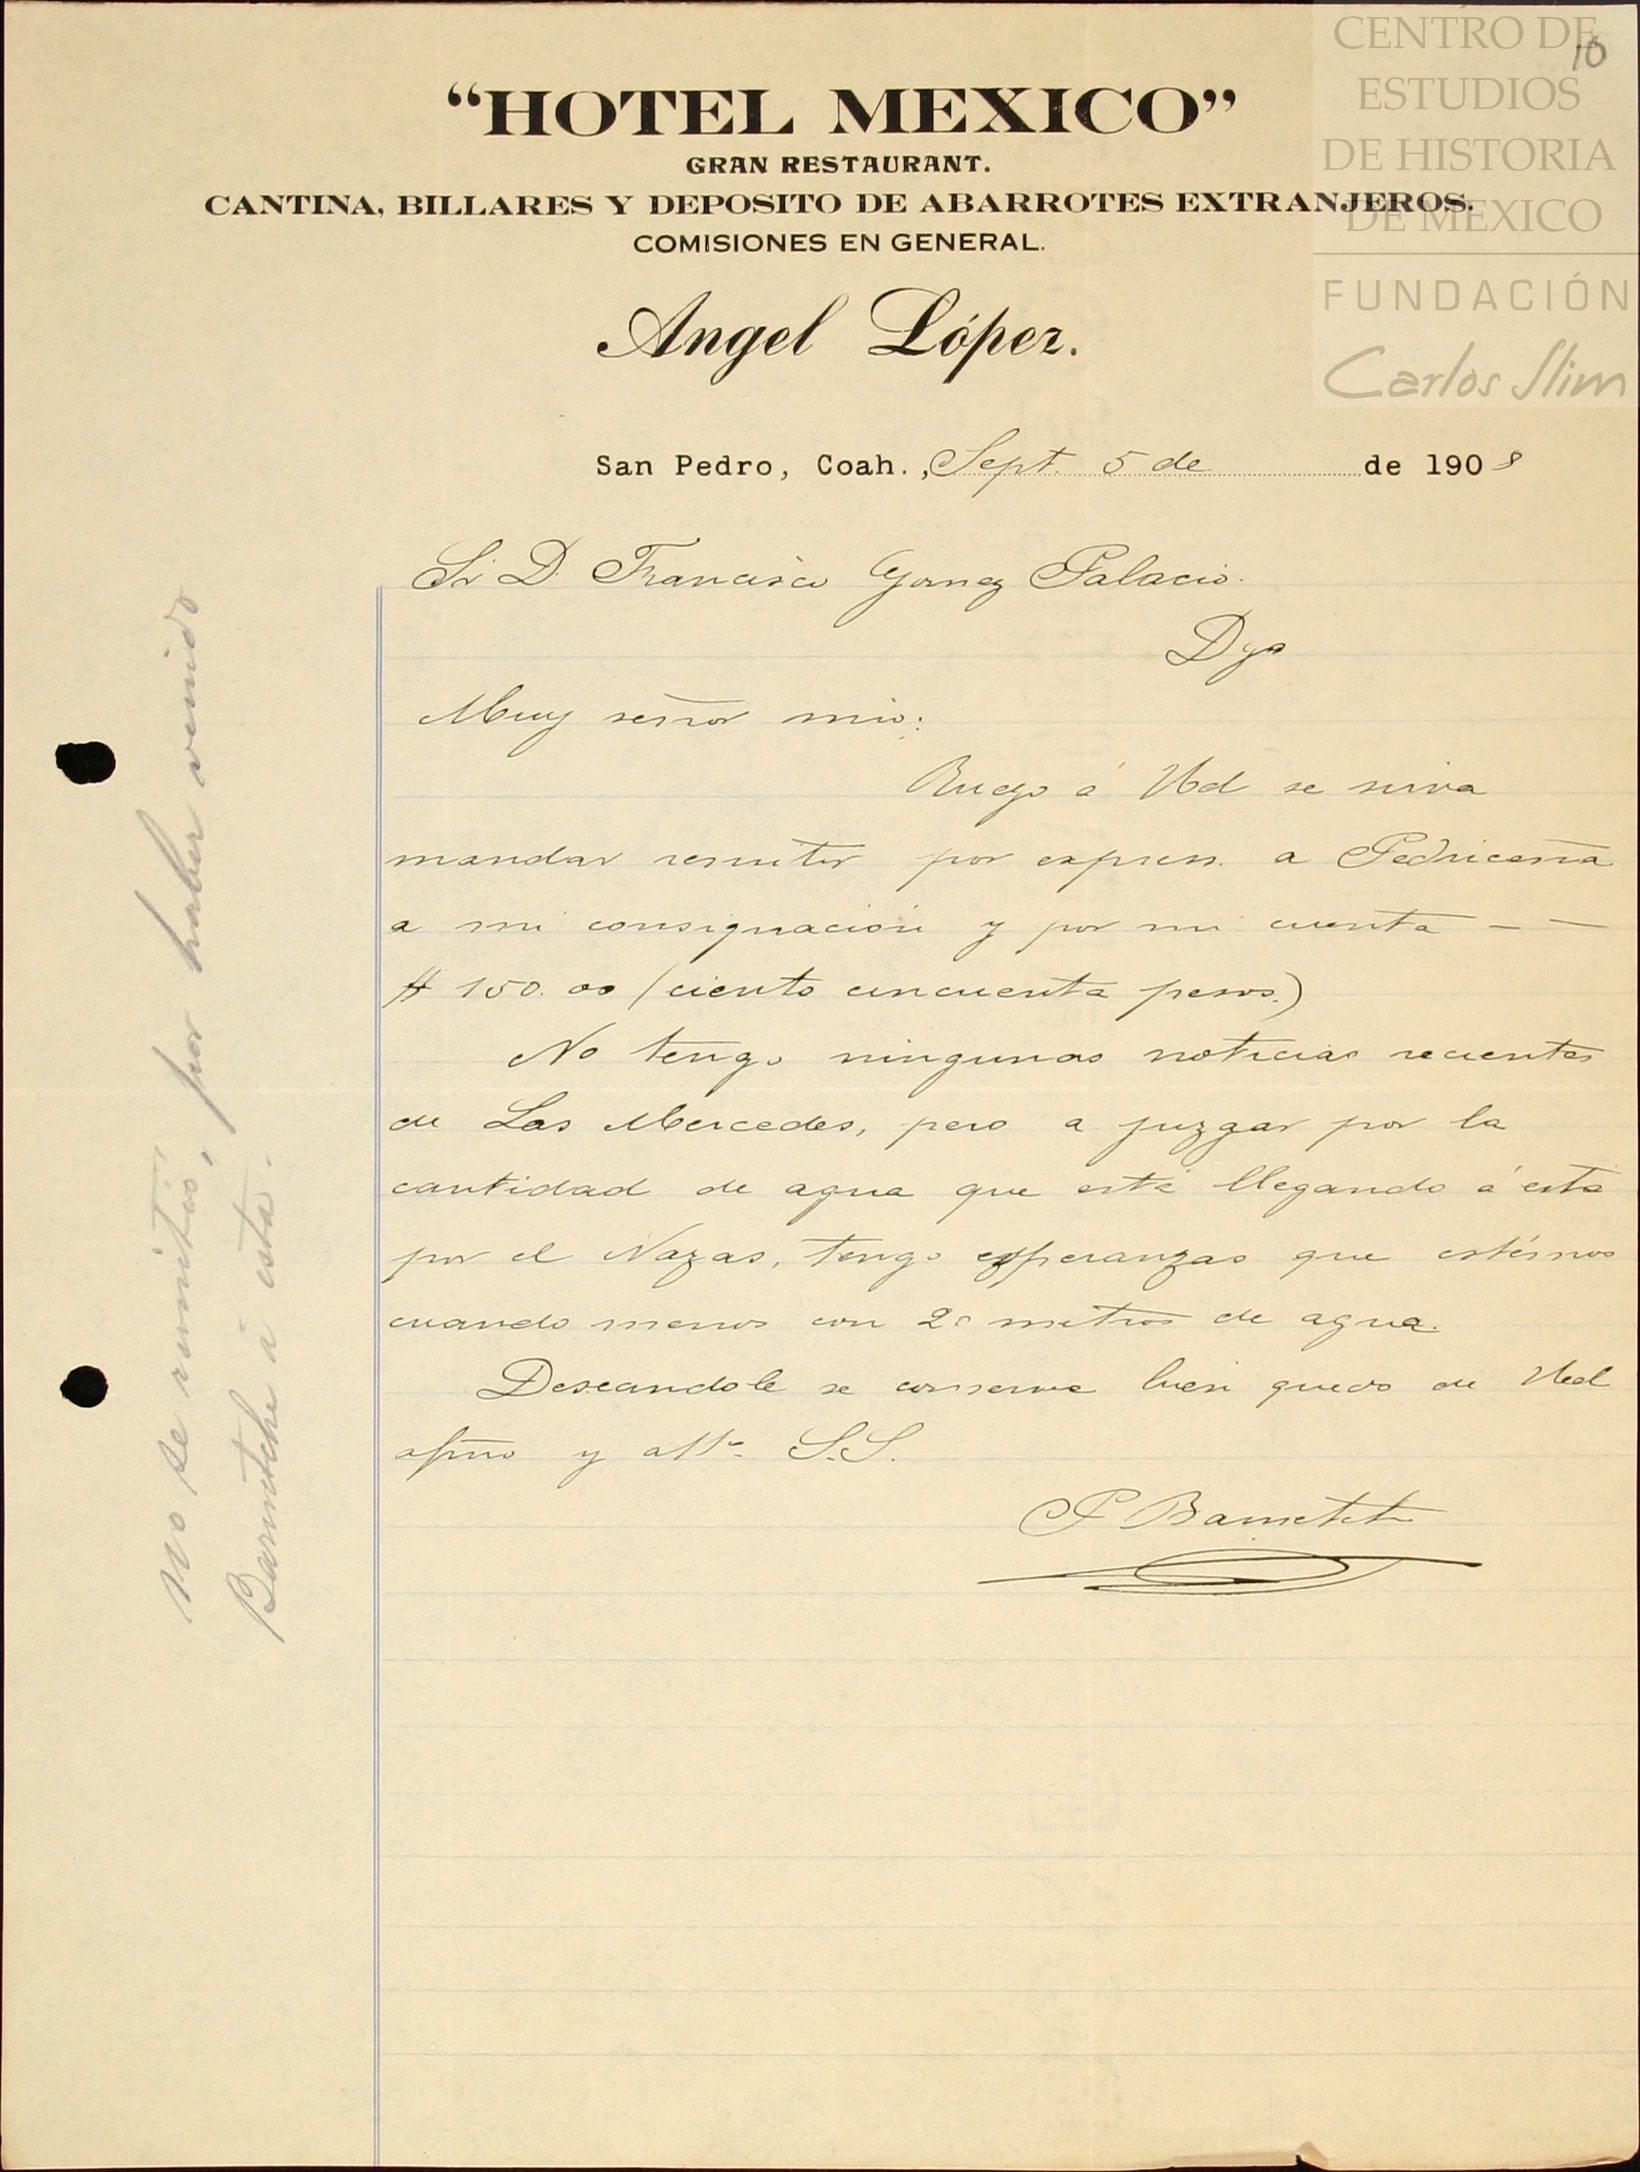 CENTRO DE
ESTUDIOS
DE HISTORIA
DE MEXICO
FUNDACIÓN
Carlos Slim
10
"HOTEL MEXICO"
GRAN RESTAURANT.
CANTINA, BILLARES Y DEPOSITO DE ABARROTES EXTRANJEROS.
COMISIONES EN GENERAL.
Angel López.
San Pedro, Coah., Sept. 5 de de 1908
Sr D. Francisco Gomez Palacio.
Dgo
Muy señor mio:
Ruego á Ud se sirva
mandar remitir por expres. a Pedriceña
a mi consignación y por mi cuenta — —
$ 150.00 (ciento cincuenta pesos.)
No tengo ningunas noticias recientes
de Las Mercedes, pero a juzgar por la
cantidad de agua que está llegando á esta
por el Nazas, tengo esperanzas que estémos
cuando menos con 20 metros de agua.
Deseandole se conserve bien quedo de Ud
afmo y atto. S.S.
P
No se remitió, por haber venido
á esta.